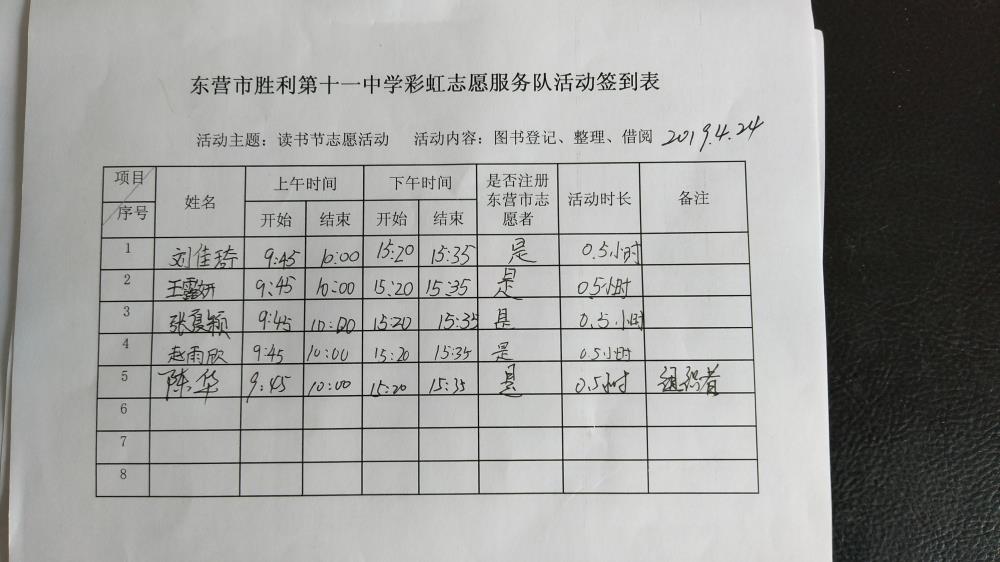 东营市胜利第十一中学彩虹志愿服务队活动签到表
活动主题：读书节志愿活动 活动内容：图书登记、整理、借阅 2019.4.24
项目 序号 姓名 上午时间 下午时间 是否注册东营市志愿者 活动时长 备注
开始 结束 开始 结束
1 刘佳琦 9:45 10:00 15:20 15:35 是 0.5小时
2 王露妍 9:45 10:00 15:20 15:35 是 0.5小时
3 张夏颖 9:45 10:00 15:20 15:35 是 0.5小时
4 赵雨欣 9:45 10:00 15:20 15:35 是 0.5小时
5 陈华 9:45 10:00 15:20 15:35 是 0.5小时 组织者
6
7
8